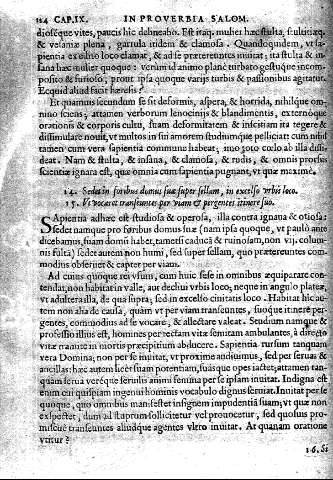 124 CAP. IX. IN PROVERBIA SALOM.
dioseque vites, paucis hic dabneabo. Est itaq. mulier hæc stulta, stultitiæq.
& velamẽ plena, garrula itidem & clamosa. Quandoquidem, vt sa-
pientia excelso loco clamat, & ad se prætereuntes inuitat; ita stulta & in-
sana hæc mulier quoque: verùm id animo planè turbato gestuque incom-
posito & furioso; prout ipsa quoque varijs turbis & passionibus agitatur.
Ecquid aliud facit hæresis?
Et quamuis secundum se sit deformis, aspera, & horrida, nihilque om-
nino sciens, attamen verborum lenocinijs & blandimentis, externoque
orationis & corporis cultu, suam deformitatem & inscitiam ita tegere &
dissimulare nouit, vt multos in sui amorem studiumque pelliciat: cùm nihil
tamen cum vera sapientia commune habeat; imo toto cœlo ab illa dissi-
deat. Nam & stulta, & insana, & clamosa, & rudis, & omnis prorsus
scientiæ ignara est, quæ omnia cum sapientia pugnant, vt quæ maximè.
14. Sedet in foribus domus suæ super sellam, in excelso vrbis loco.
15. Vt vocaret transeuntes per viam & pergentes itinere suo.
Sapientia adhæc est studiosa & operosa, illa contra ignaua & otiosa:
sedet namque pro foribus domus suæ (nam ipsa quoque, vt paulò antè
dicebamus, suam domũ habet, tametsi caducã & ruinosam, non vij. colum-
nis fultã) sedet autem non humi, sed super sellam, quo prætereuntes com-
modius obseruet & captet per viam.
Ad cuius quoque rei vsum, cum huic sese in omnibus æquiparare con-
tendat, non habitat in valle, aut decliui vrbis loco; neque in angulo plateæ,
vt adultera illa, de qua supra; sed in excelso ciuitatis loco. Habitat hic au-
tem non alia de causa, quàm vt per viam transeuntes, suoque itinere per-
gentes, commodius ad se vocare, & allectare valeat. Studium namque &
professio illius est, homines per rectam vitæ semitam ambulantes, à directo
vitæ tramite in mortis præcipitium abducere. Sapientia rursum tanquam
vera Domina; non per se inuitat, vt proximè audiuimus, sed per seruas &
ancillas: hæc autem licèt suam potentiam, suasque opes iactet; attamen tan-
quam serua veréque seruilis animi femina per se ipsam inuitat. Indigna est
enim cui quispiam ingenui hominis vocabulo dignus seruiat. Inuitat per se
quoque, quo omnibus manifestet insignem impudentiã suam; vt quæ non
exspectet, dum ad stuprum sollicitetur vel prouocetur, sed quosuis pro-
miscuè transeuntes aliudque agentes vltro inuitat. At quanam oratione
vtitur?
16. Si